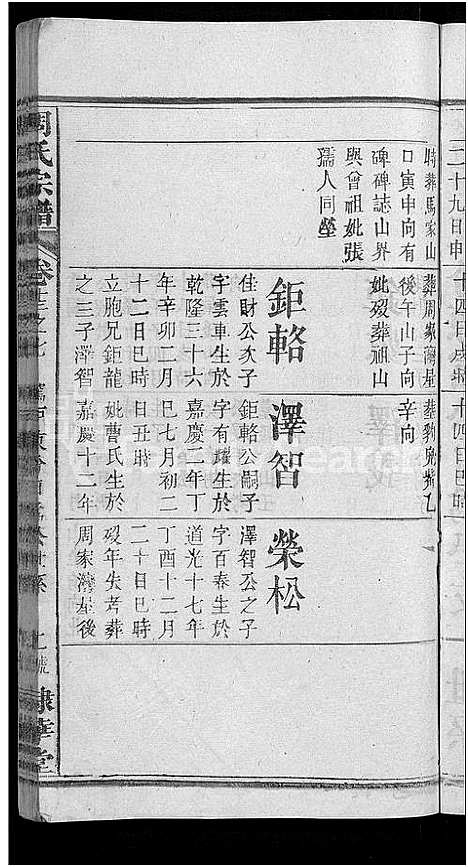 二十九日申
十四日戌時
十四日巳時
時葬馬家山
口寅申向有
碑碑誌山界
與曾祖妣張
孺人同塋
葬周家灣星
後午山子向
妣歿葬祖山
辛向
鉅輅
佳財公次子
字雲車生於
乾隆三十六
年辛卯二月
十二日巳時
立胞兄鉅龍
之三子澤智
澤智
鉅輅公嗣子
字有耀生於
嘉慶二年丁
巳七月初二
日丑時
妣曹氏生於
嘉慶十二年
榮松
澤智公之子
字百春生於
道光十七年
丁酉十二月
二十日巳時
歿年失考葬
周家灣星後
周氏宗譜
卷
世系
七號
棣華堂
search